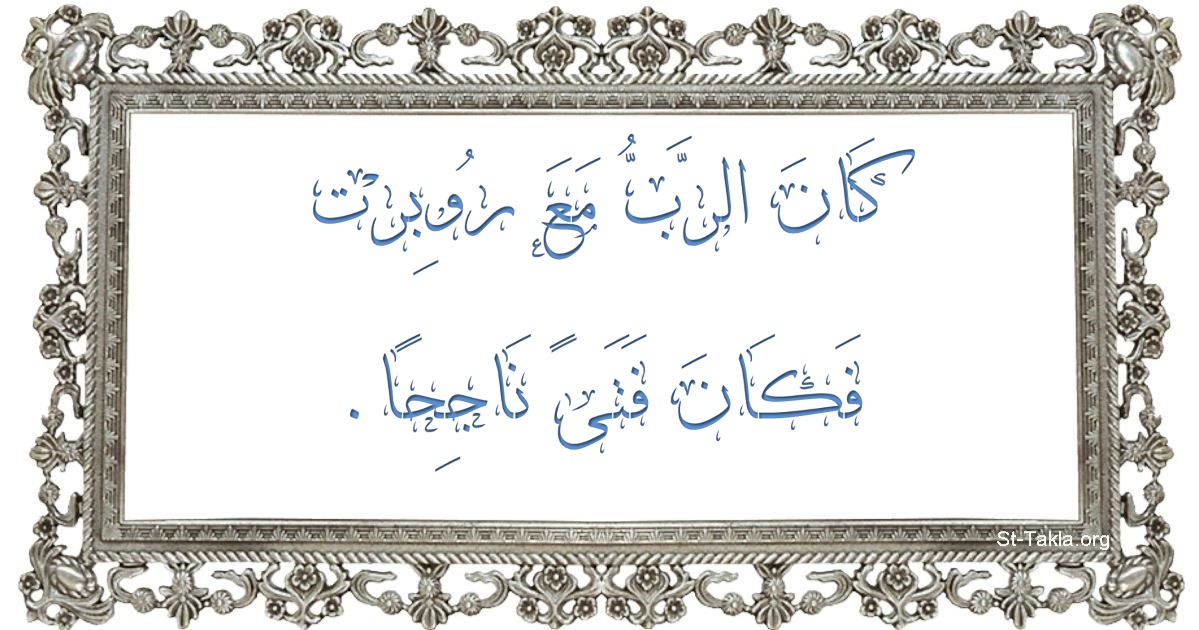 كَانَ الرَّبُّ مَعَ رُوبِرْت
فَكَانَ فَتَىً نَاجِحًا .
St-Takla.org